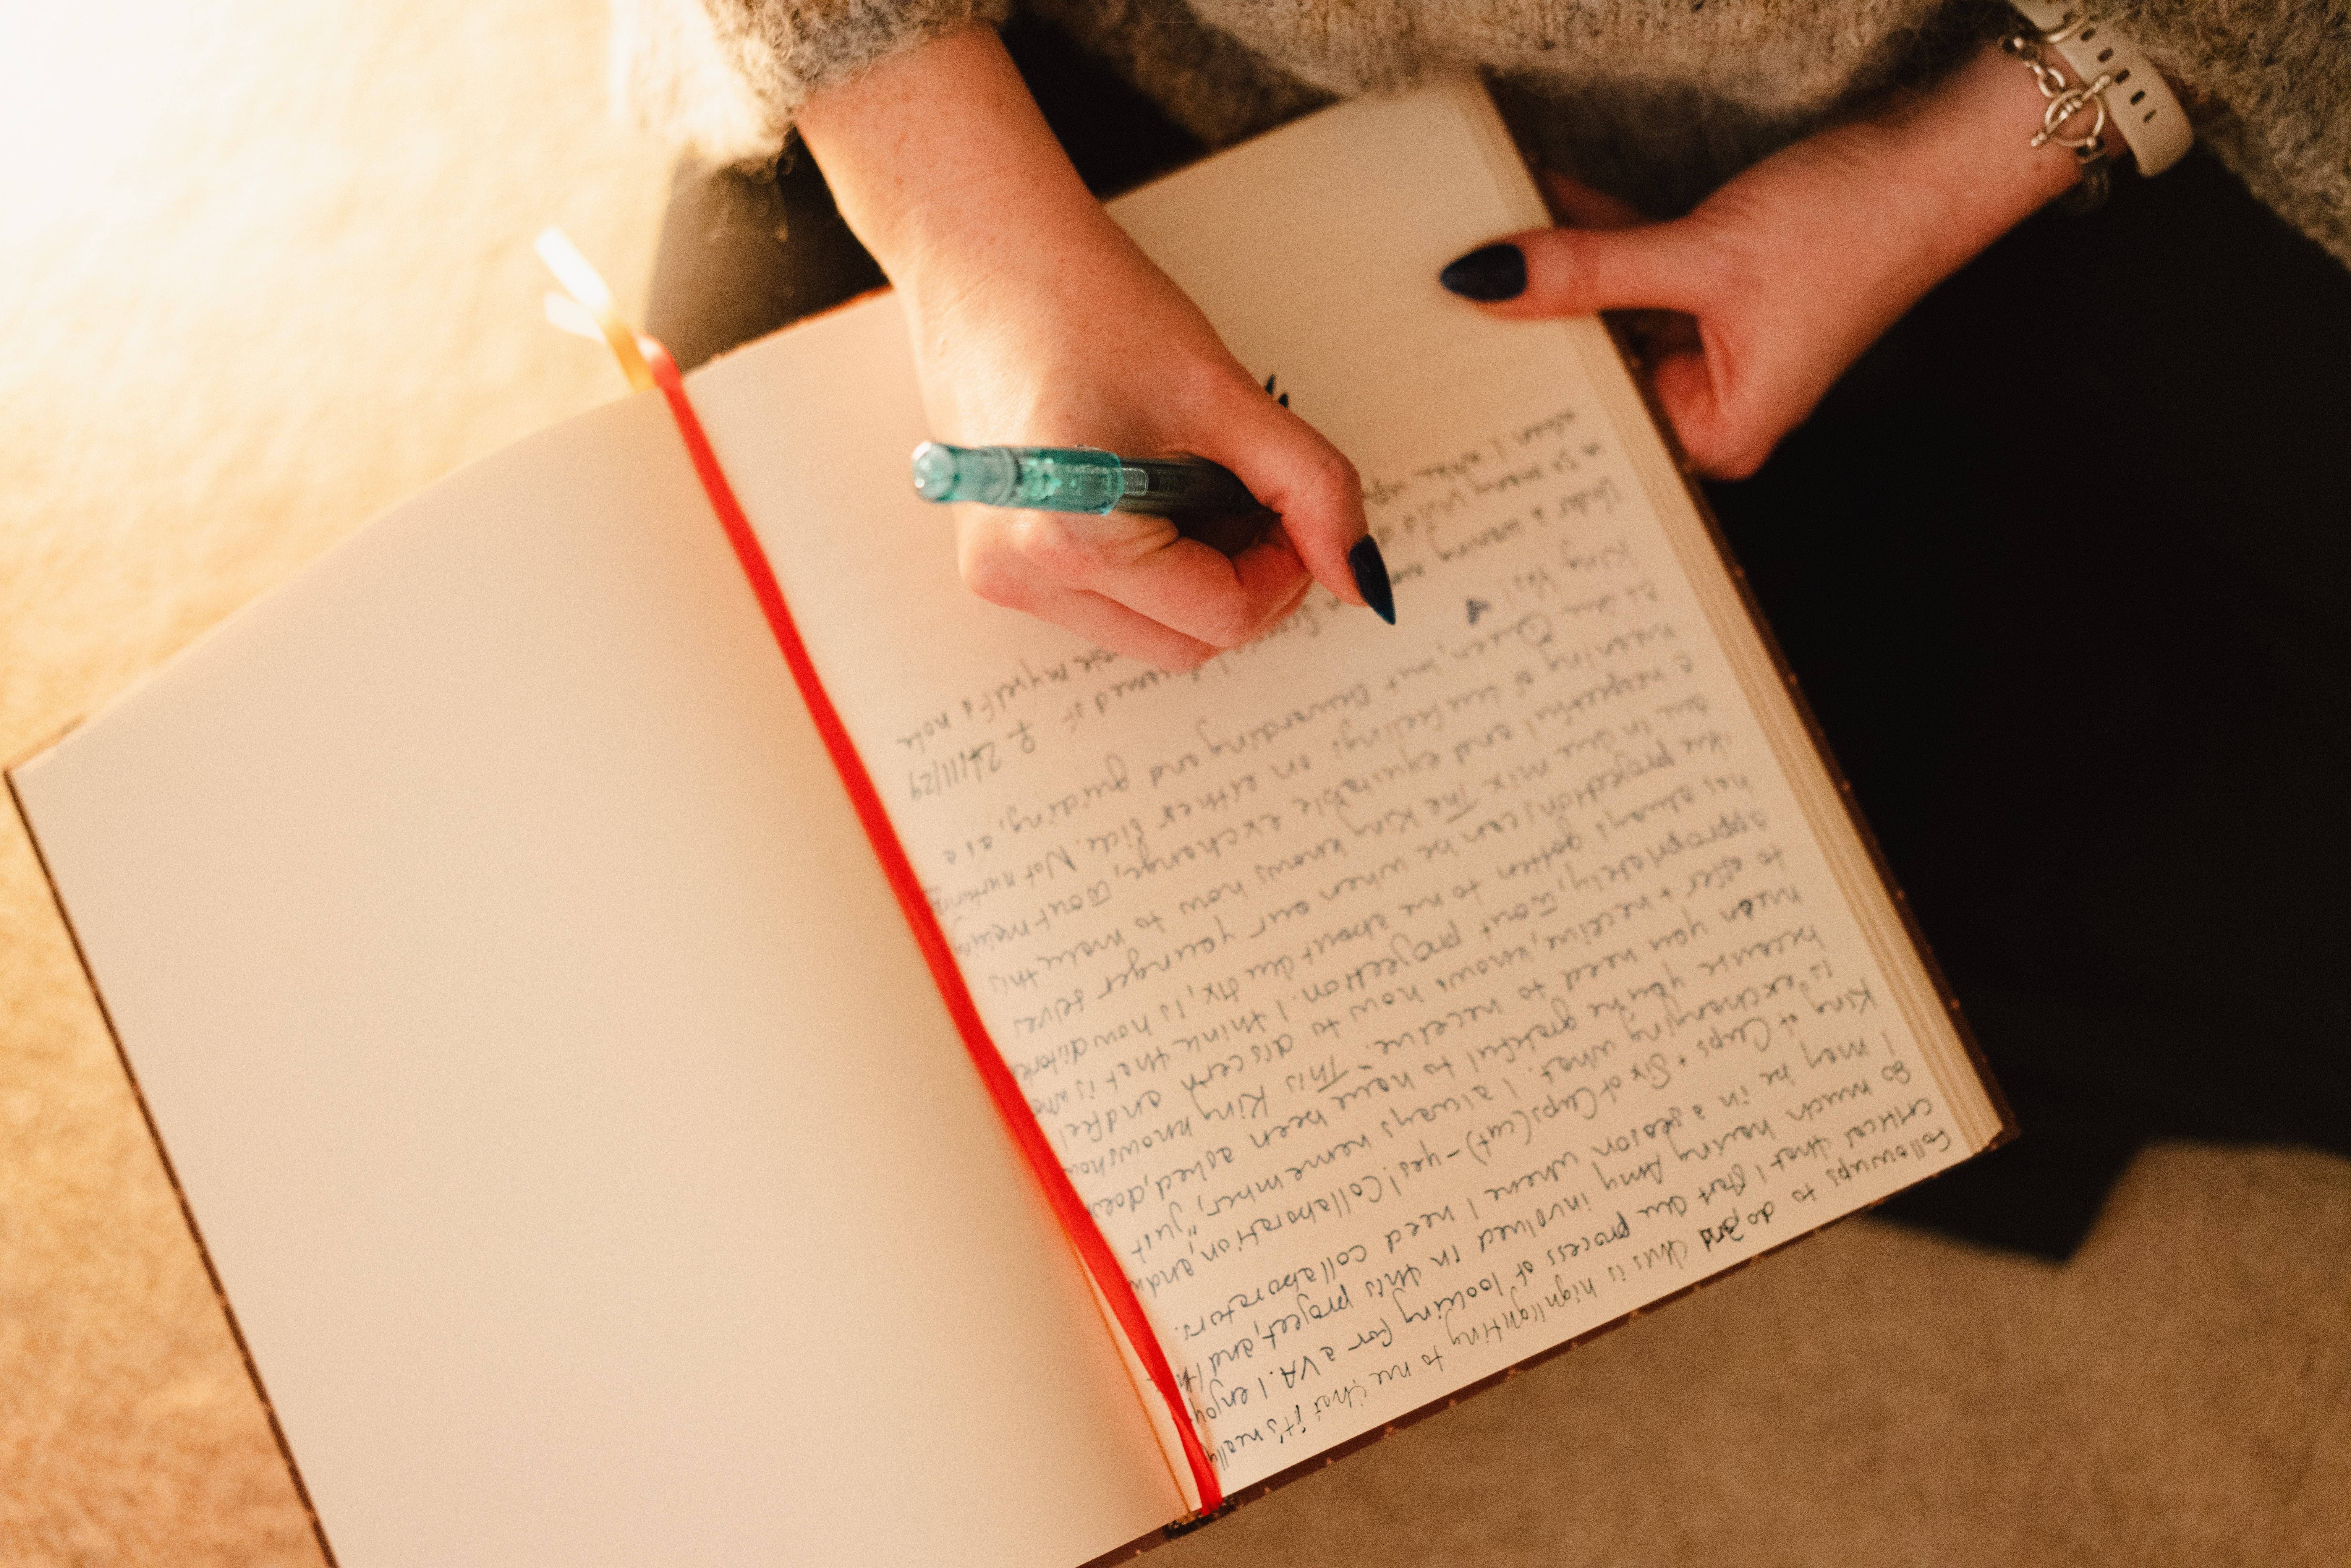 Followups to do and this is highlighting to me that it's really
critical that I start the process of looking for a VA. I enjoy
so much having Amy involved in this project, and I
I may be in a session where I need collaborators.
King of Cups + Six of Cups (cut) - yes! Collaboration, and
is exchanging what. I always remember, "just
because you're grateful to have been asked, does
mean you need to receive." This King knows how
to offer + receive, knows how to discern and feel
appropriately, w/out projection. I think that is
has always gotten to me about the 6x, is how
the projections can be when our younger selves
are in the mix. The King knows how to make this
a respectful and equitable exchange, w/out making
meaning of the feelings on either side. Not nurturing
as the Queen, but and guiding,
King
Under a waning moon 24/11/24
in so many dreamed of
when I woke up myself a note